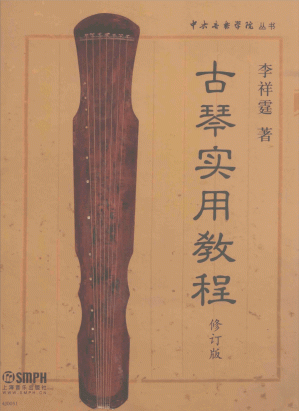 中央音乐学院丛书
李祥霆 著
古琴实用教程
修订版
SMPH
上海音乐出版社
WWW.SMPH.CN